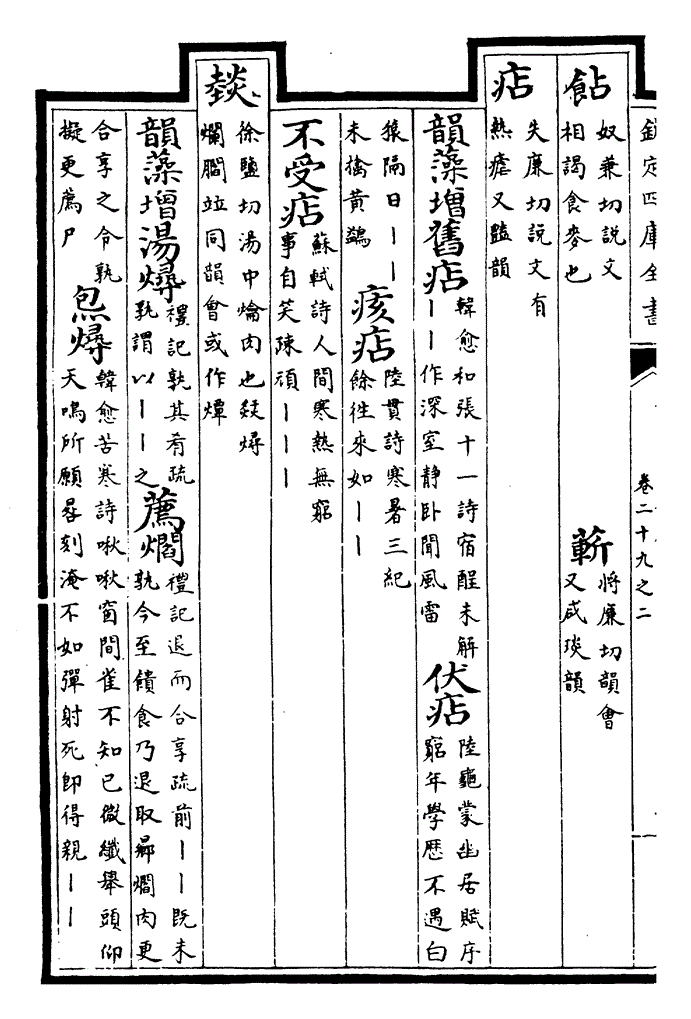 欽定四庫全書
卷二十九之二
䬯奴兼切說文
相謁食麥也
蔪將廉切韻會
又咸琰韻
痁失廉切說文有
熱瘧又豔韻
韻藻增舊痁韓愈和張十一詩宿酲未解
丨丨作深室静卧聞風雷
伏痁陸龜蒙幽居賦序
窮年學歴不遇白
猿隔日丨丨
未擒黄鷂
痎痁陸貫詩寒暑三紀
餘徃來如丨丨
不受痁蘇軾詩人間寒熱無窮
事自笑陳頑丨丨丨
燅徐鹽切湯中爚肉也錟燖
爓膶竝同韻會或作燂
韻藻增湯燖禮記孰其肴疏
孰謂以丨丨之
薦爓禮記退而合享疏前丨丨既未
孰今至饋食乃退取㷇爓肉更
合享之令孰
擬更薦尸
炰燖韓愈苦寒詩啾啾窗間雀不知已微纖舉頭仰
天鳴所願晷刻淹不如彈射死即得親丨丨